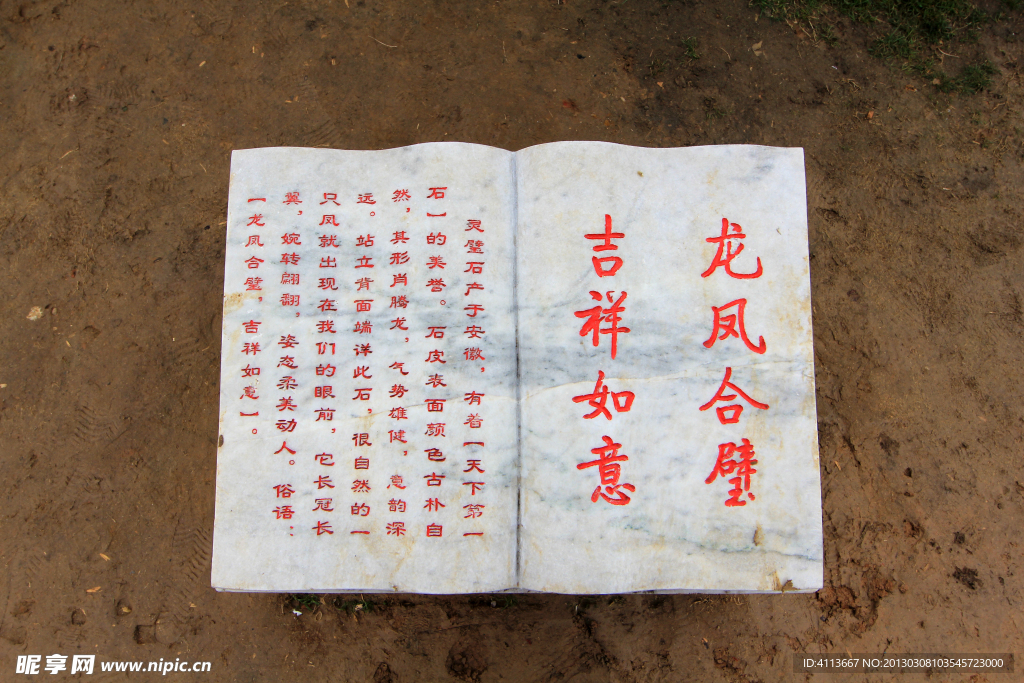 龙凤合璧
吉祥如意
灵璧石产于安徽，有着【天下第一
石】的美誉。石皮表面颜色古朴自
然，其形肖腾龙，气势雄健，意韵深
远。站立背面端详此石，很自然的一
只凤就出现在我们的眼前，它长冠长
翼，婉转翩翻，姿态柔美动人。俗语：
【龙凤合璧，吉祥如意】。
昵享网 www.nipic.cn
ID:4113667 NO:20130308103545723000